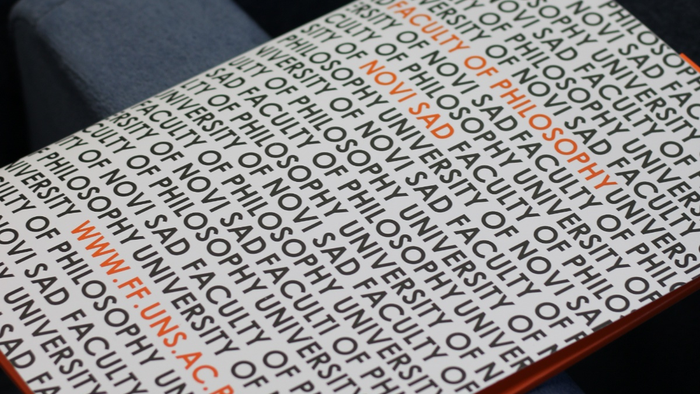 PHILOSOPHY
NOVI SAD FACULTY
PHILOSOPHY UNIVERSITY
OF NOVI SAD FACULTY
FACULTY OF PHILOSOPHY UNIVERSITY
UNIVERSITY OF NOVI SAD FACULTY
FACULTY OF PHILOSOPHY UNIVERSITY
UNIVERSITY OF NOVI SAD FACULTY OF
FACULTY OF PHILOSOPHY UNIVERSITY OF
OF NOVI SAD FACULTY OF PHILO
PHILOSOPHY UNIVERSITY OF NOVI SA
UNIVERSITY OF NOVI SAD FACULTY OF
FACULTY OF PHILOSOPHY UNIVERSITY OF N
SAD FACULTY OF PHILOSOPHY UNIVER
UNIVERSITY OF NOVI SAD FACULTY
FACULTY OF PHILOSOPHY UNIVERSITY
OF NOVI SAD FACULTY OF
PHILOSOPHY UNIVERSITY OF
UNIVERSITY WWW.FF.UNS.AC.R
FACULTY OF PHILOSOPHY UNI
NOVI SAD FACULTY
SAD FA